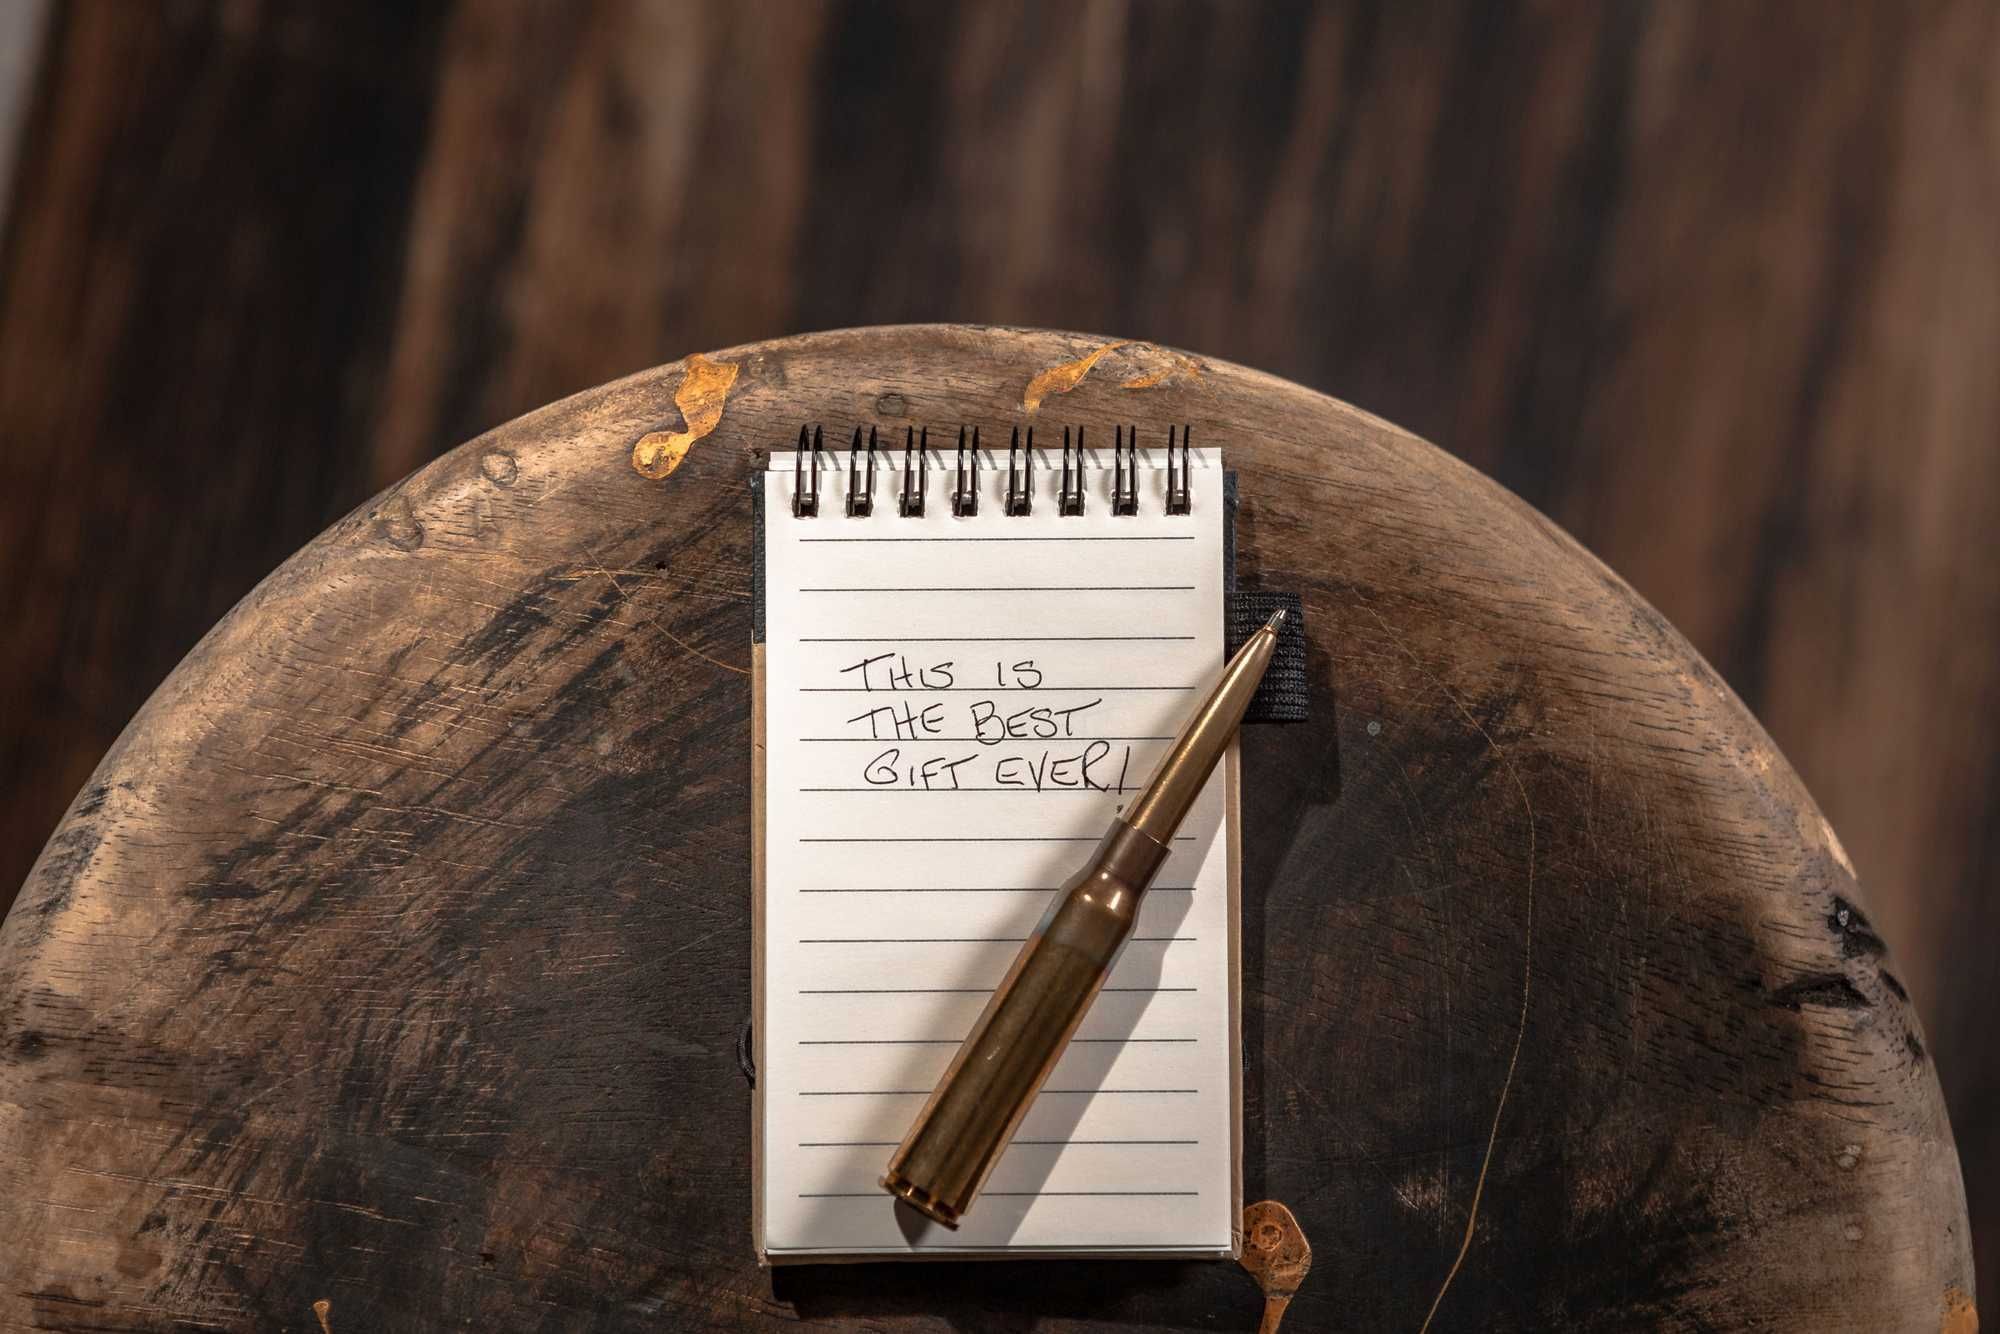 THIS IS
THE BEST
GIFT EVER!